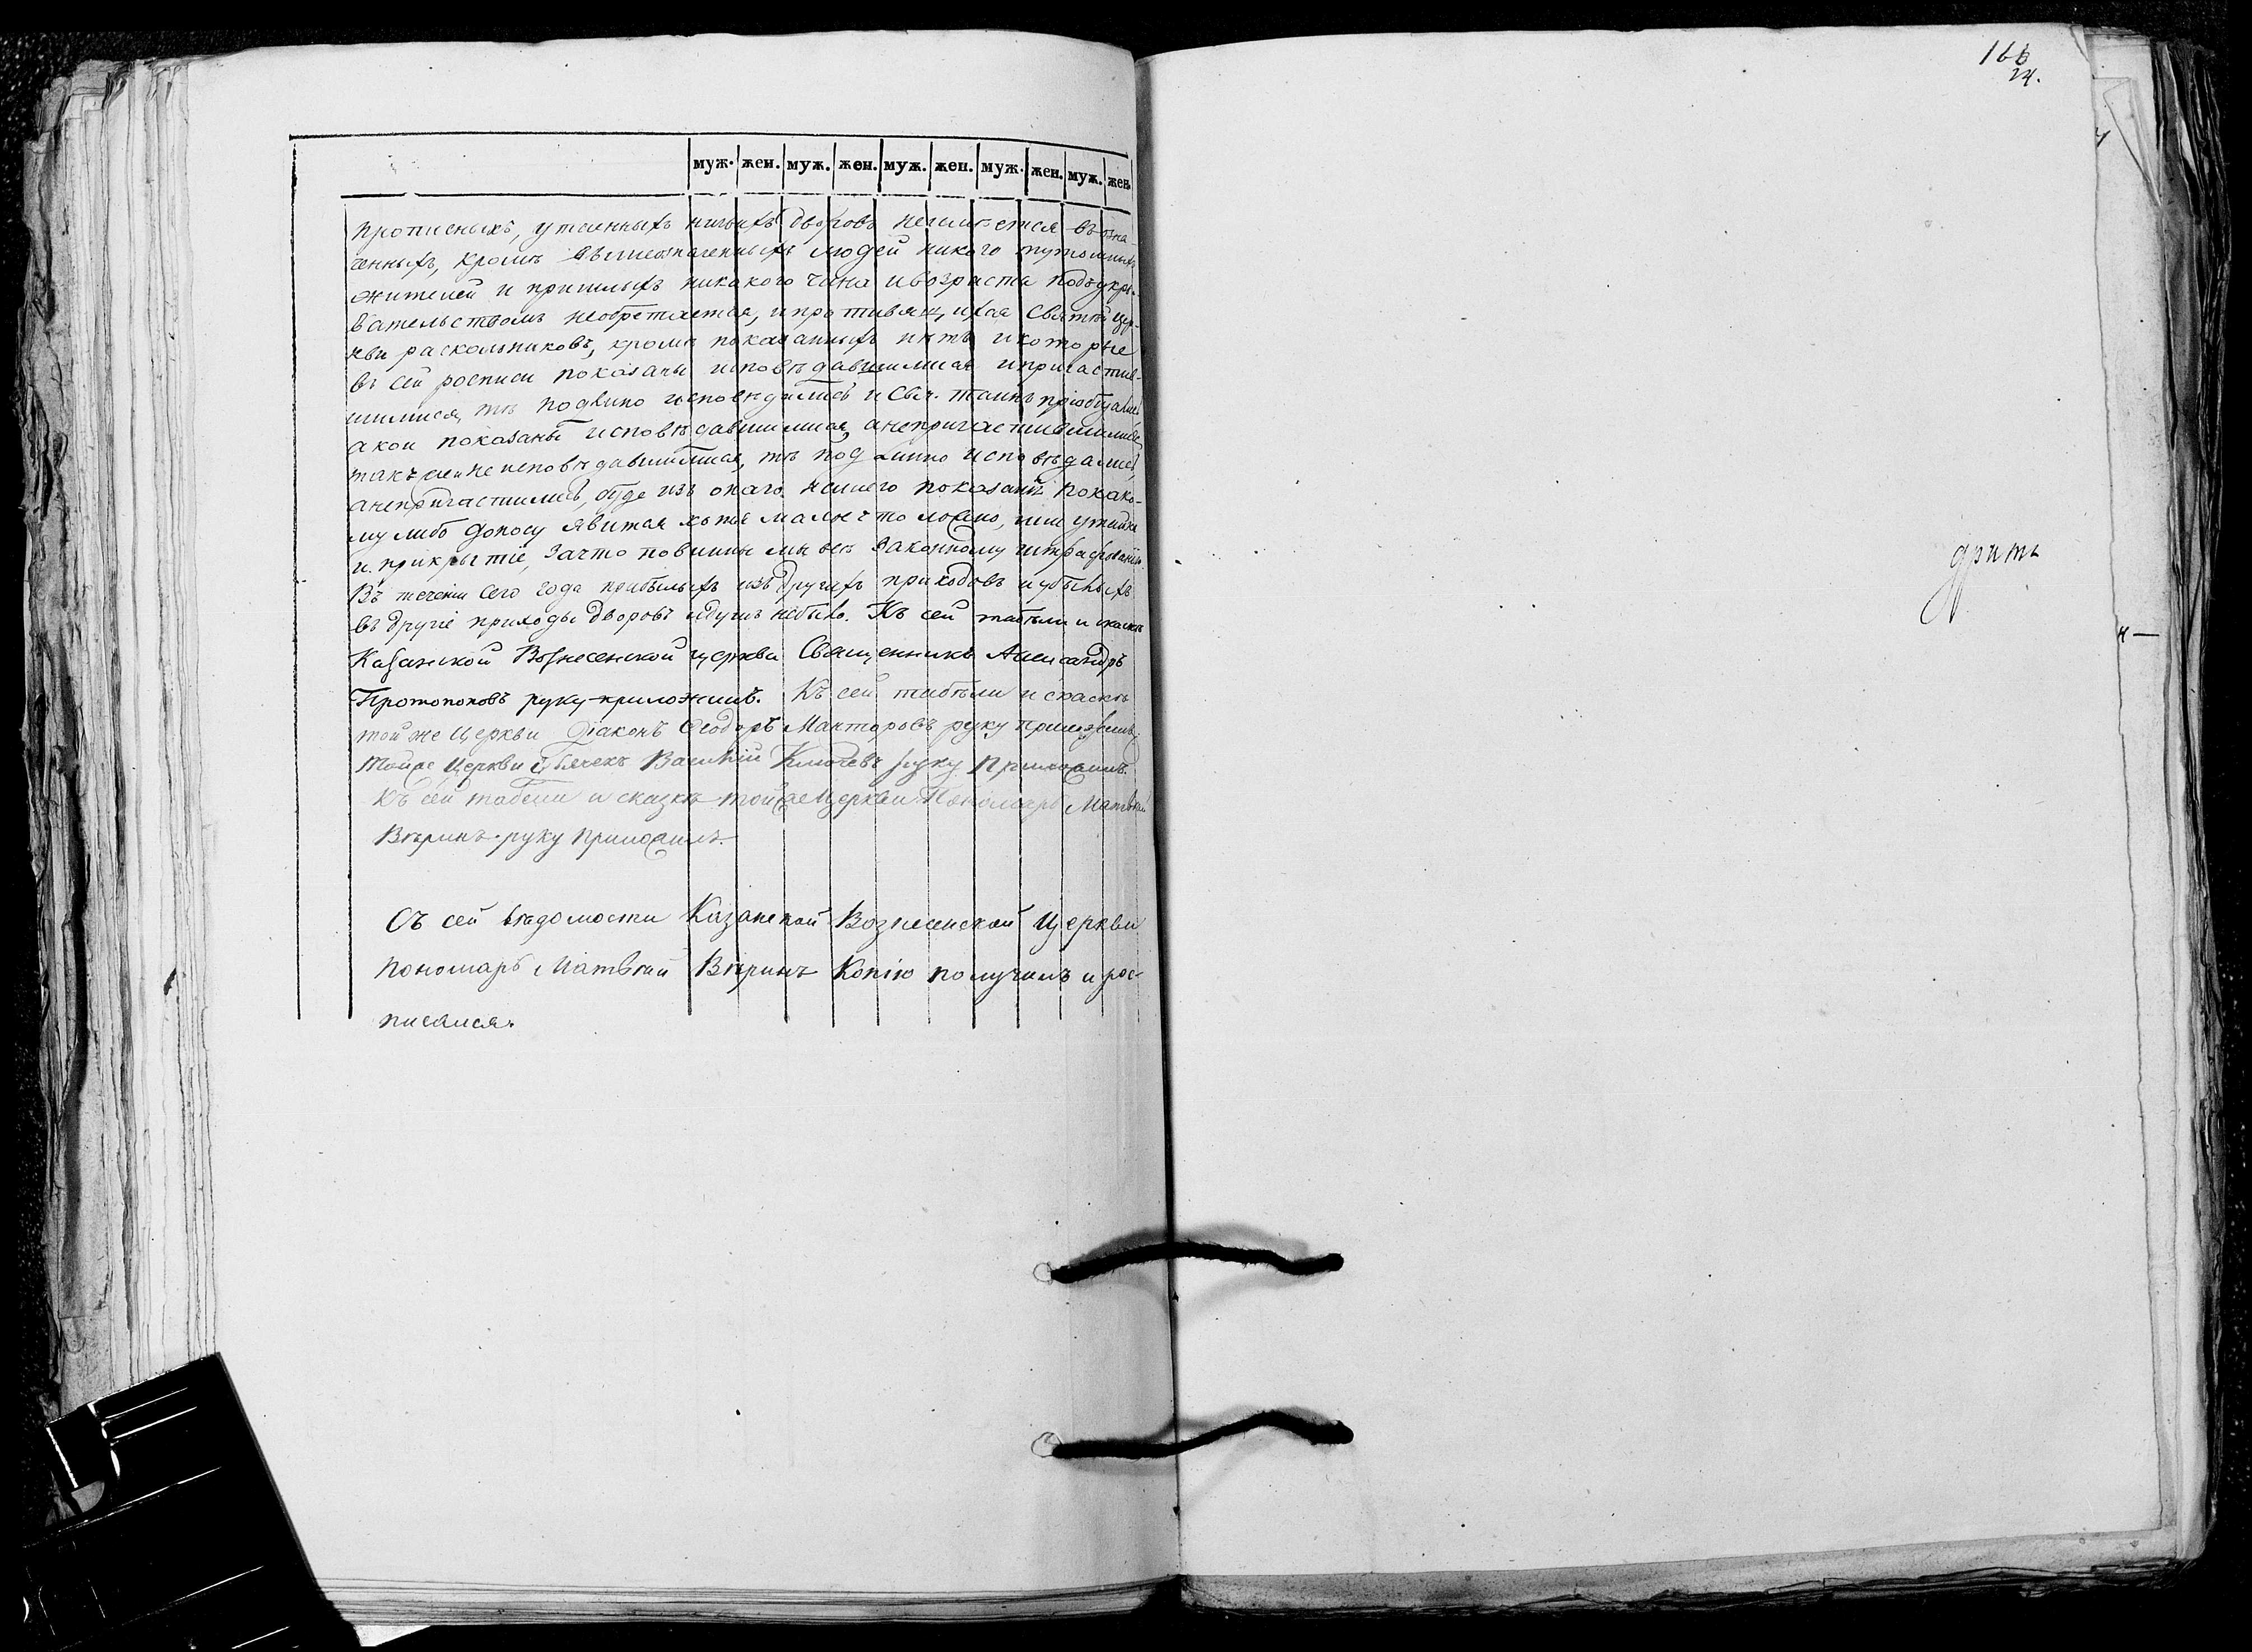 166
24.
муж. жен. муж. жен. муж. жен. муж. жен. муж. жен.
прописныхъ, утаенныхъ ничьихъ дворовъ неимѣется въ озна-
ченныхъ, кромѣ вышеозначенныхъ людей никого тутошныхъ
жителей и пришлыхъ никакого чина и возраста подъ укры-
вательствомъ необретается, и противящихся Святой цер-
кви раскольниковъ, кромѣ показанныхъ нѣтъ и которые
въ сей росписи показаны исповѣдавшимися и причастив-
шимися, тѣ подлино исповѣдались и Свя. таинъ пріобщались
а кои показаны исповѣдавшимися, а непричастившимися
такъ же и не исповѣдавшимися, тѣ подлинно исповѣдались,
а непричастились, буде изъ онаго нашего показанія по како-
му либо доносу явится хотя мало что ложно, или утайка
и прикрытіе, за что повинны мы всѣ законному штрафованію.
Въ теченіи сего года прибылыхъ изъ другихъ приходовъ и убылыхъ
въ другіе приходы дворовъ и душъ небыло. Къ сей табели и сказкѣ
Казанской Вознесенской церкви Священникъ Александръ
Протопоповъ руку приложилъ. Къ сей табели и сказкѣ
той же Церкви Діаконъ Ѳеодоръ руку приложилъ,
тойже Церкви Дьячекъ Василій Ключевъ руку Приложилъ.
Къ сей табели и сказкѣ тойже Церкви Пономарь Матвѣй
Вѣринъ руку приложилъ.
Съ сей вѣдомости Казанской Вознесенской Церкви
пономарь Матвѣй Вѣринъ Копію получилъ и рос-
писался.